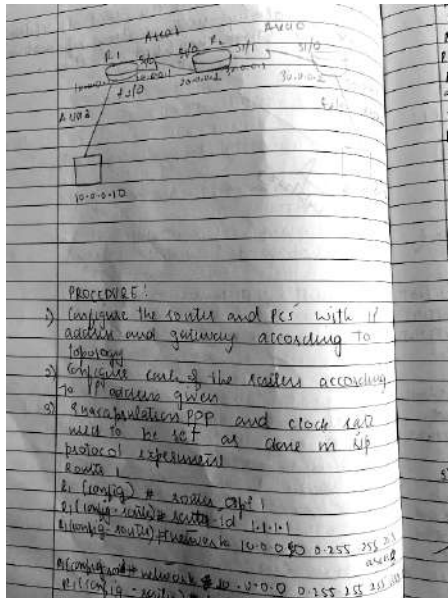 Area 1
Area 0
R1
S1/0
R2
S1/1
S1/0
20.0.0.1
20.0.0.2
30.0.0.1
30.0.0.2
f0/0
10.0.0.10
PROCEDURE:
1) Configure the router and PCs with IP
address and gateway according to
topology
2) Configure each of the routers according
to IP address given
3) Encapsulation PPP and clock rate
need to be set as done in Rip
protocol experiment
Router 1
R1 (config) # router ospf 1
R1 (config-router) # router-id 1.1.1.1
R1 (config-router) # network 10.0.0.0 0.255.255.255
area
R1 (config-router) # network 0.255.255.255
R1 (config-router) #